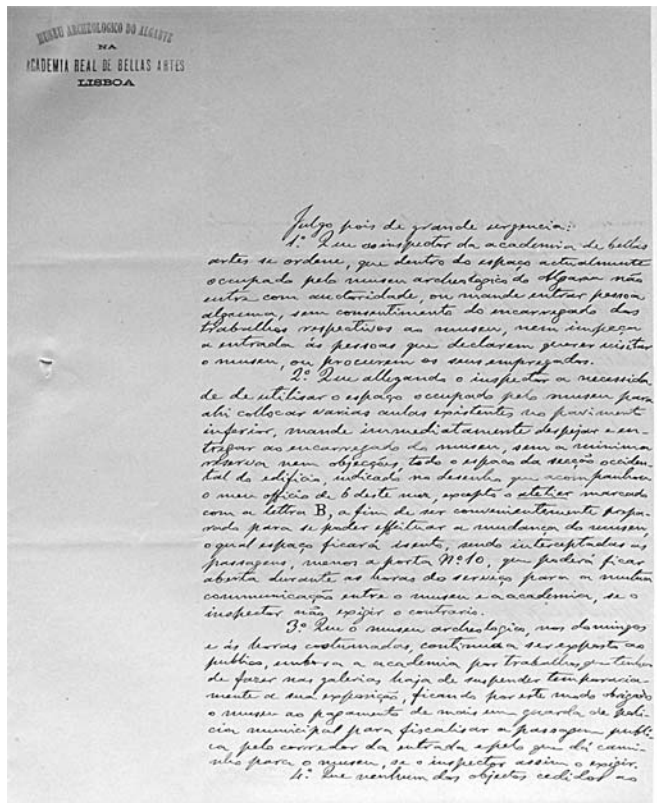 MUSEU ARCHEOLOGICO DO ALGARVE
NA
ACADEMIA REAL DE BELLAS ARTES
LISBOA
Julgo pois de grande urgencia:
1.º Que ao inspector da academia de bellas
artes se ordene, que dentro do espaço actualmente
occupado pelo museu archeologico do Algarve não
entre com auctoridade, ou mande entrar pessoa
alguma, sem consentimento do encarregado dos
trabalhos respectivos ao museu, nem impeça
a entrada ás pessoas que declarem querer visitar
o museu, ou procurem os seus empregados.
2.º Que allegando o inspector a necessida
de de utilisar o espaço occupado pelo museu para
ahi collocar varias aulas existentes no pavimento
inferior, mande immediatamente despejar e en-
tregar ao encarregado do museu, sem a minima
reserva nem objecções, todo o espaço da secção occiden
tal do edificio, indicado no desenho que acompanhou
o meu officio de 6 deste mez, excepto o atelier marcado
com a lettra B, a fim de ser convenientemente prepa-
rado para se poder effeituar a mudança do museu,
o qual espaço ficará isento, sendo interceptadas as
passagens, menos a porta Nº 10, que poderá ficar
aberta durante as horas do serviço para a mutua
communicação entre o museu e a academia, se o
inspector não exigir o contrario.
3.º Que o museu archeologico, nos domingos
e ás horas costumadas, continue a ser exposto ao
publico, embora a academia por trabalhos que tenha
de fazer nas galerias haja de suspender temporaria-
mente a sua exposição, ficando por este modo obrigado
o museu ao pagamento de mais um guarda de poli-
cia municipal para fiscalisar a passagem publi
ca pelo corredor da entrada e pelo que dá cami-
nho para o museu, se o inspector assim o exigir.
4.º Que nenhum dos objectos cedidos ao